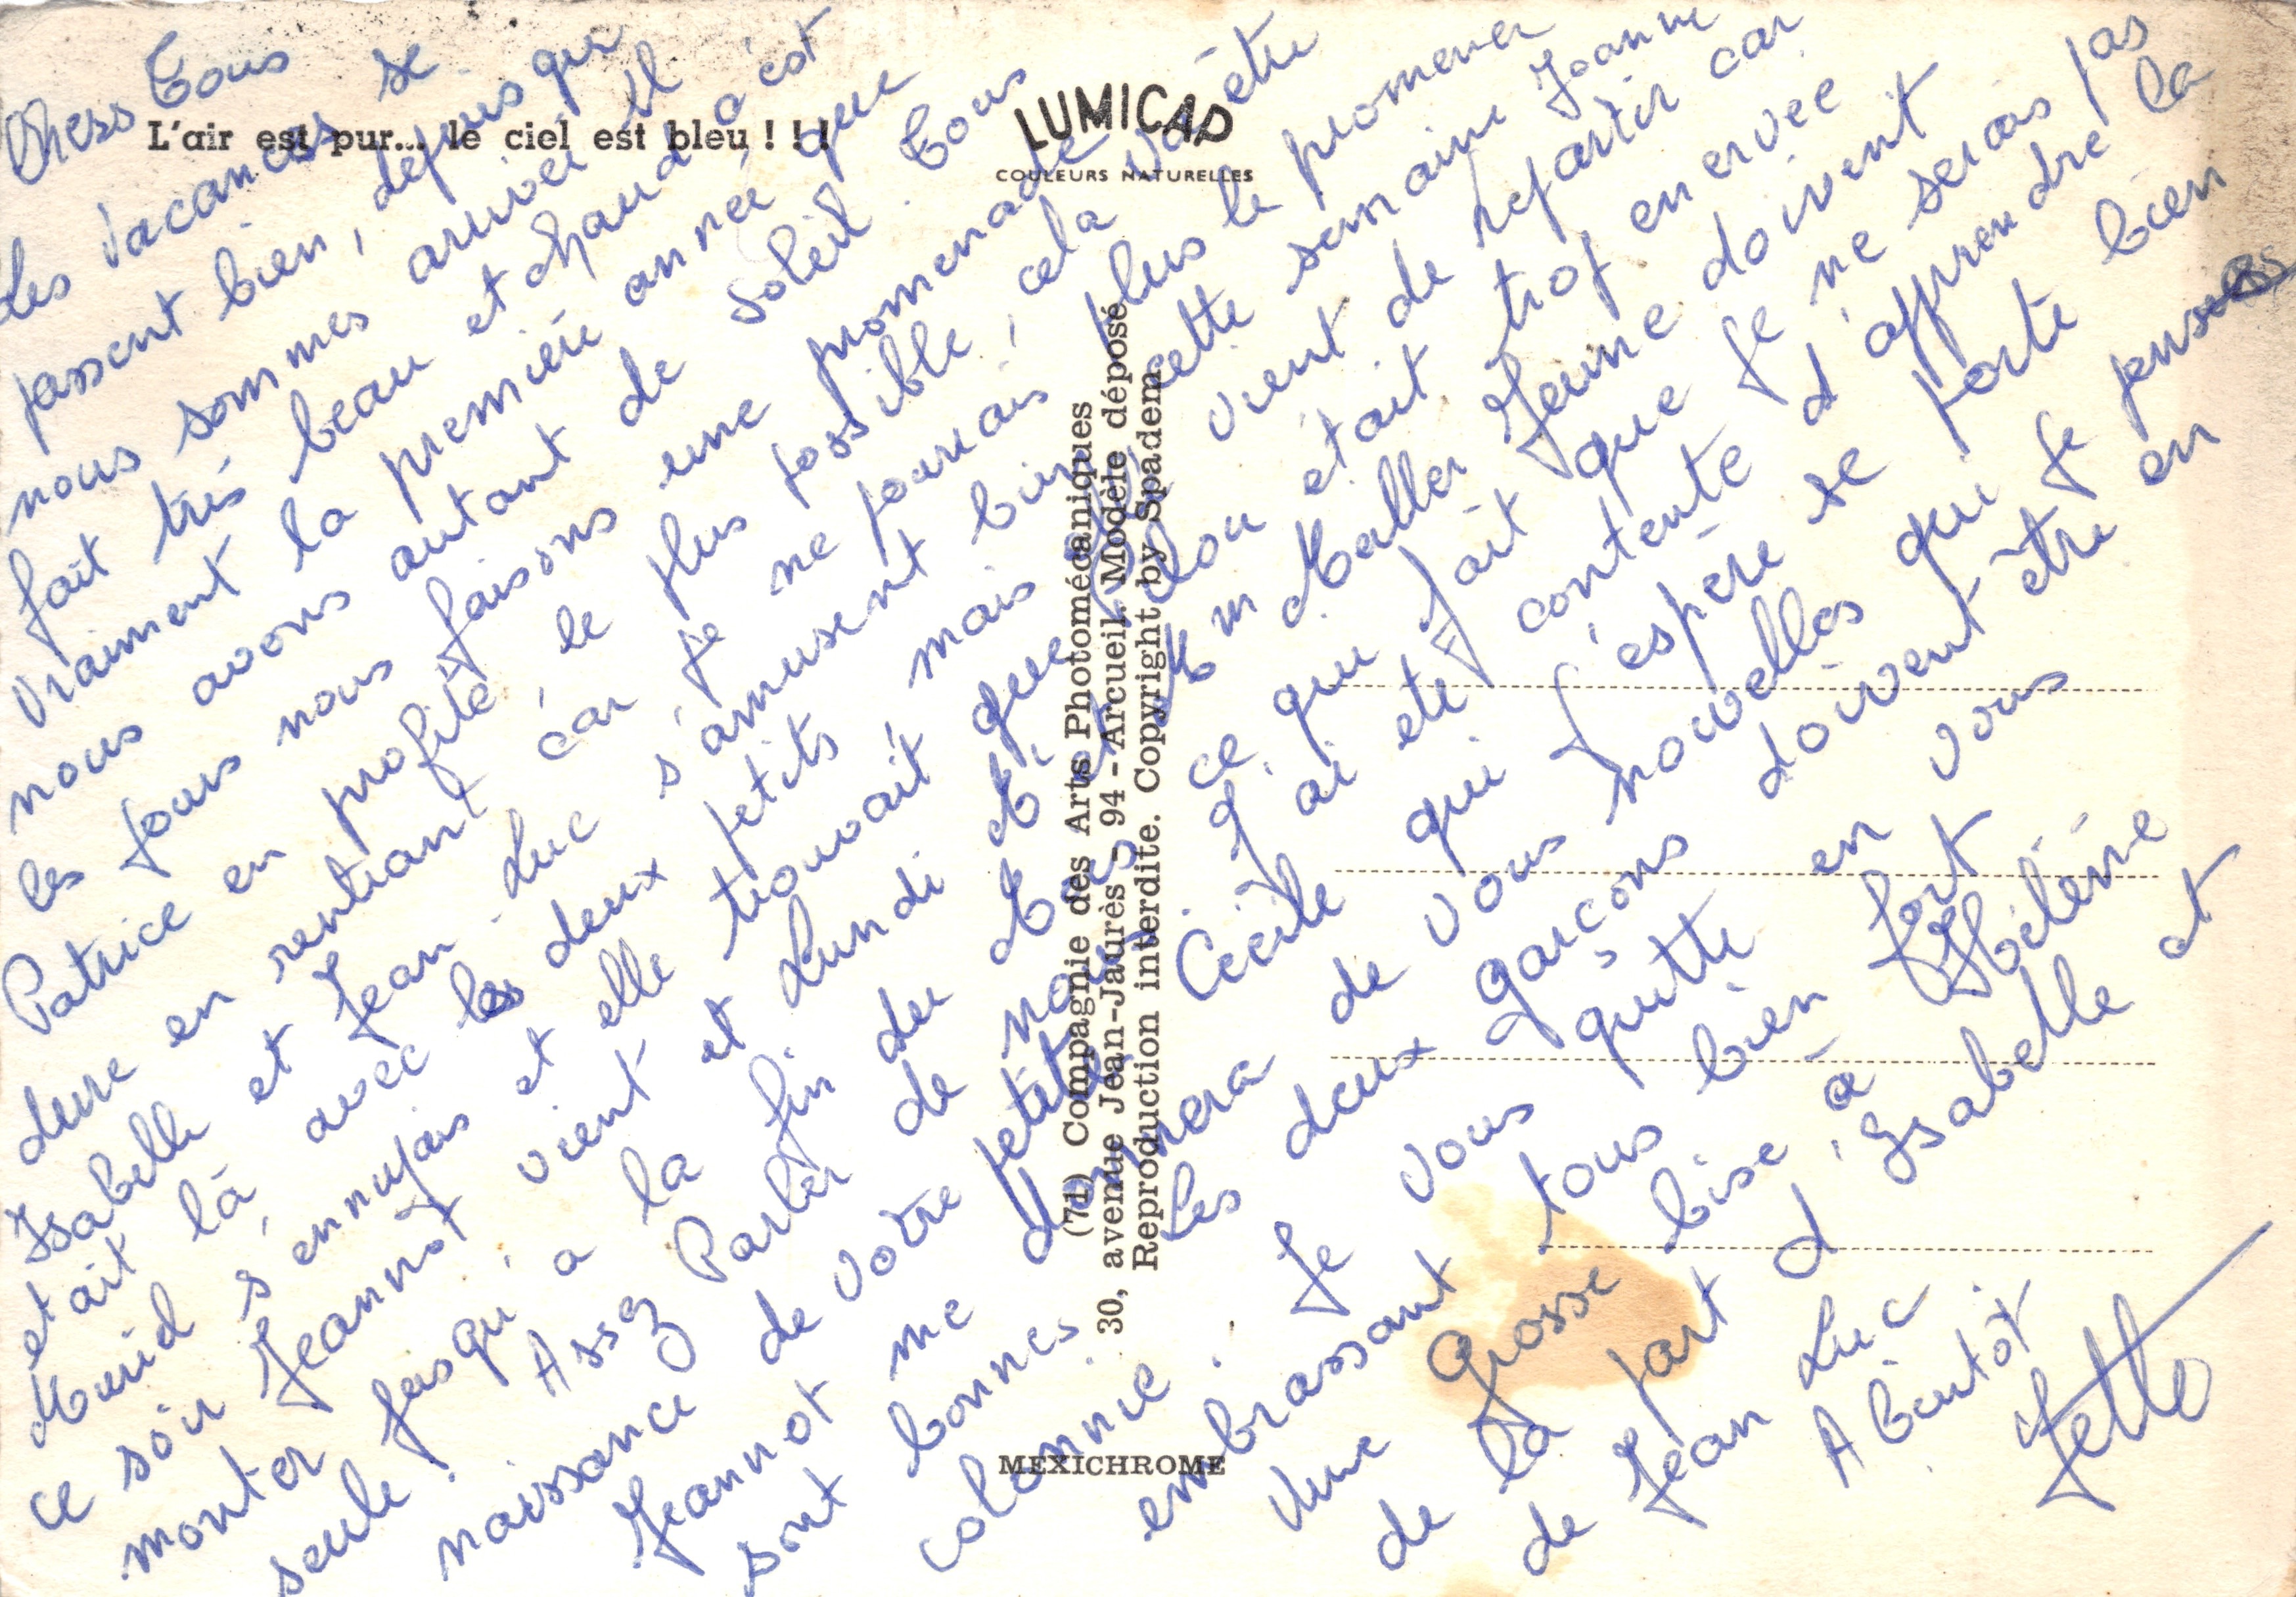 L'air est pur... le ciel est bleu ! ! !
LUMICAP
COULEURS NATURELLES
Chers Tous
Les vacances se
passent bien, depuis que
nous sommes arrivée il
fait très beau et chaud c'est
Vraiment la première année que
nous avons autant de soleil. Tous
les jours nous faisons une promenade
Patrice en profite le plus possible, cela va être
dure en rentrant car je ne pourrais plus le promener
Isabelle et Jean Luc s'amusent bien cette semaine
etait là avec les deux petits mais vient de repartir car
s'ennuyais et elle trouvait que était trop enervée
ce soir Jeannot vient et Lundi M. et Mm Jeune doivent
monter jusqu'a la fin du Mois ce qui fait que je ne serais pas
seule. Assez Parler de nous. J'ai eté contente d'apprendre la
naissance de votre petite Cécile qui j'espère se porte bien
Jeannot me donnera de vous nouvelles qui je pense
sont bonnes. Les deux garçons doivent être en
colonnie. Je vous quitte en vous
embrassant tous bien fort
Une grosse bise à Hélène
de la part d'Isabelle et
de Jean Luc
A bientot
(71) Compagnie des Arts Photomécaniques
30, avenue Jean-Jaurès - 94 - Arcueil. Modèle déposé
Reproduction interdite. Copyright by Spadem
MEXICHROME